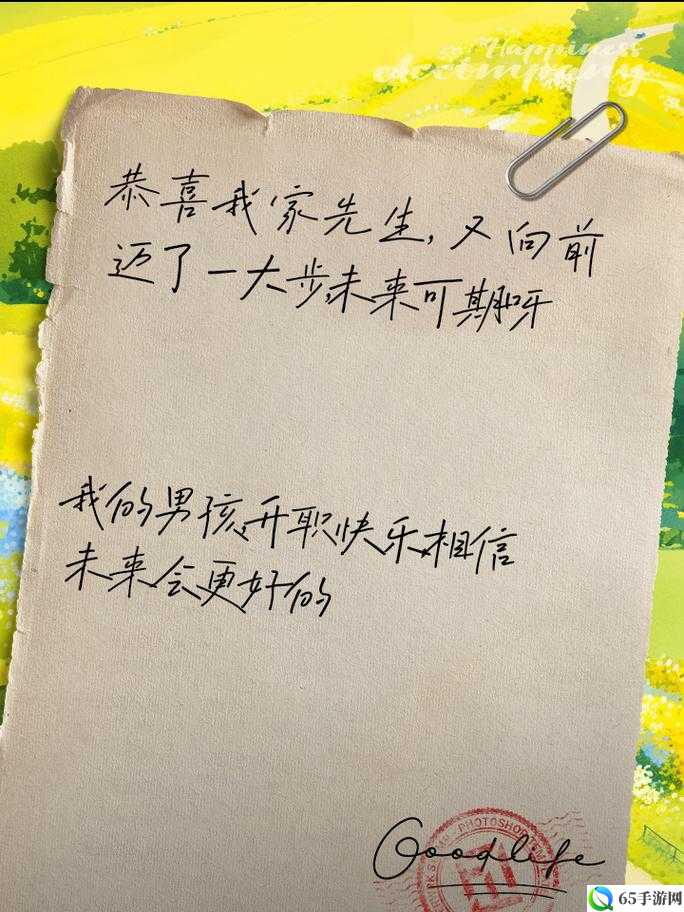 Happiness
恭喜我家先生,又向前
迈了一大步,未来可期呀
我的男孩,开职快乐,相信
未来会更好的
PHOTOSHOP
Goodlife
65手游网